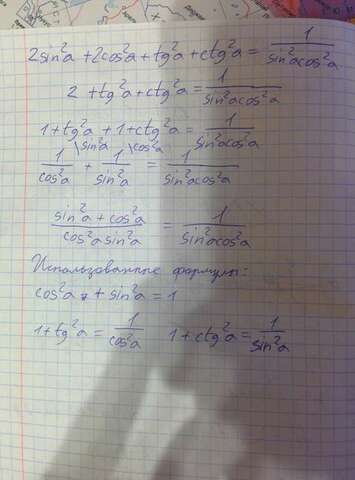 2sin²a + 2cos²a + tg²a + ctg²a = 1/(sin²a cos²a)
2 + tg²a + ctg²a = 1/(sin²a cos²a)
1 + tg²a + 1 + ctg²a = 1/(sin²a cos²a)
\sin²a \cos²a
1/cos²a + 1/sin²a = 1/(sin²a cos²a)
(sin²a + cos²a)/(cos²a sin²a) = 1/(sin²a cos²a)
Использованные формулы:
cos²a + sin²a = 1
1 + tg²a = 1/cos²a 1 + ctg²a = 1/sin²a